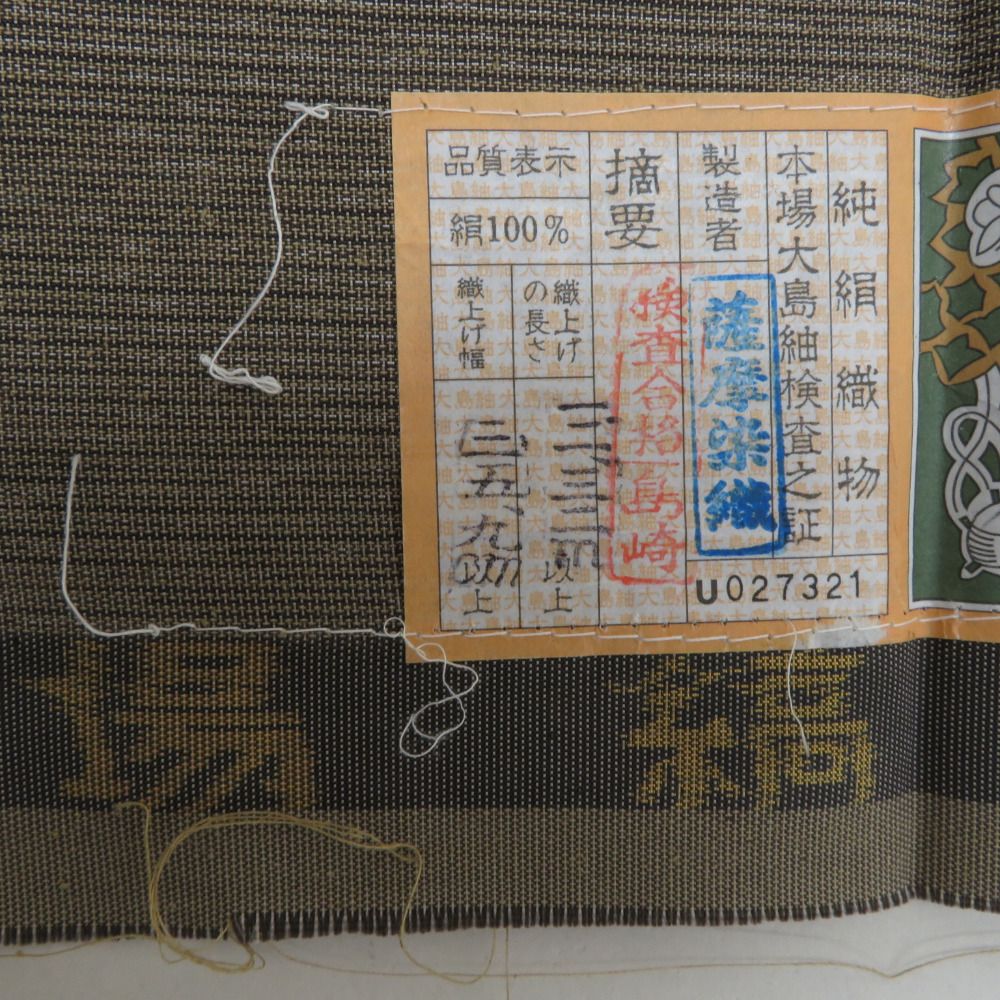 純絹織物
本場大島紬検査之証
製造者
薩摩染織
U027321
摘要
検査合格
島崎
品質表示
絹100%
織上げの長さ
以上
織上げ幅
三五、九
以上
場
縞